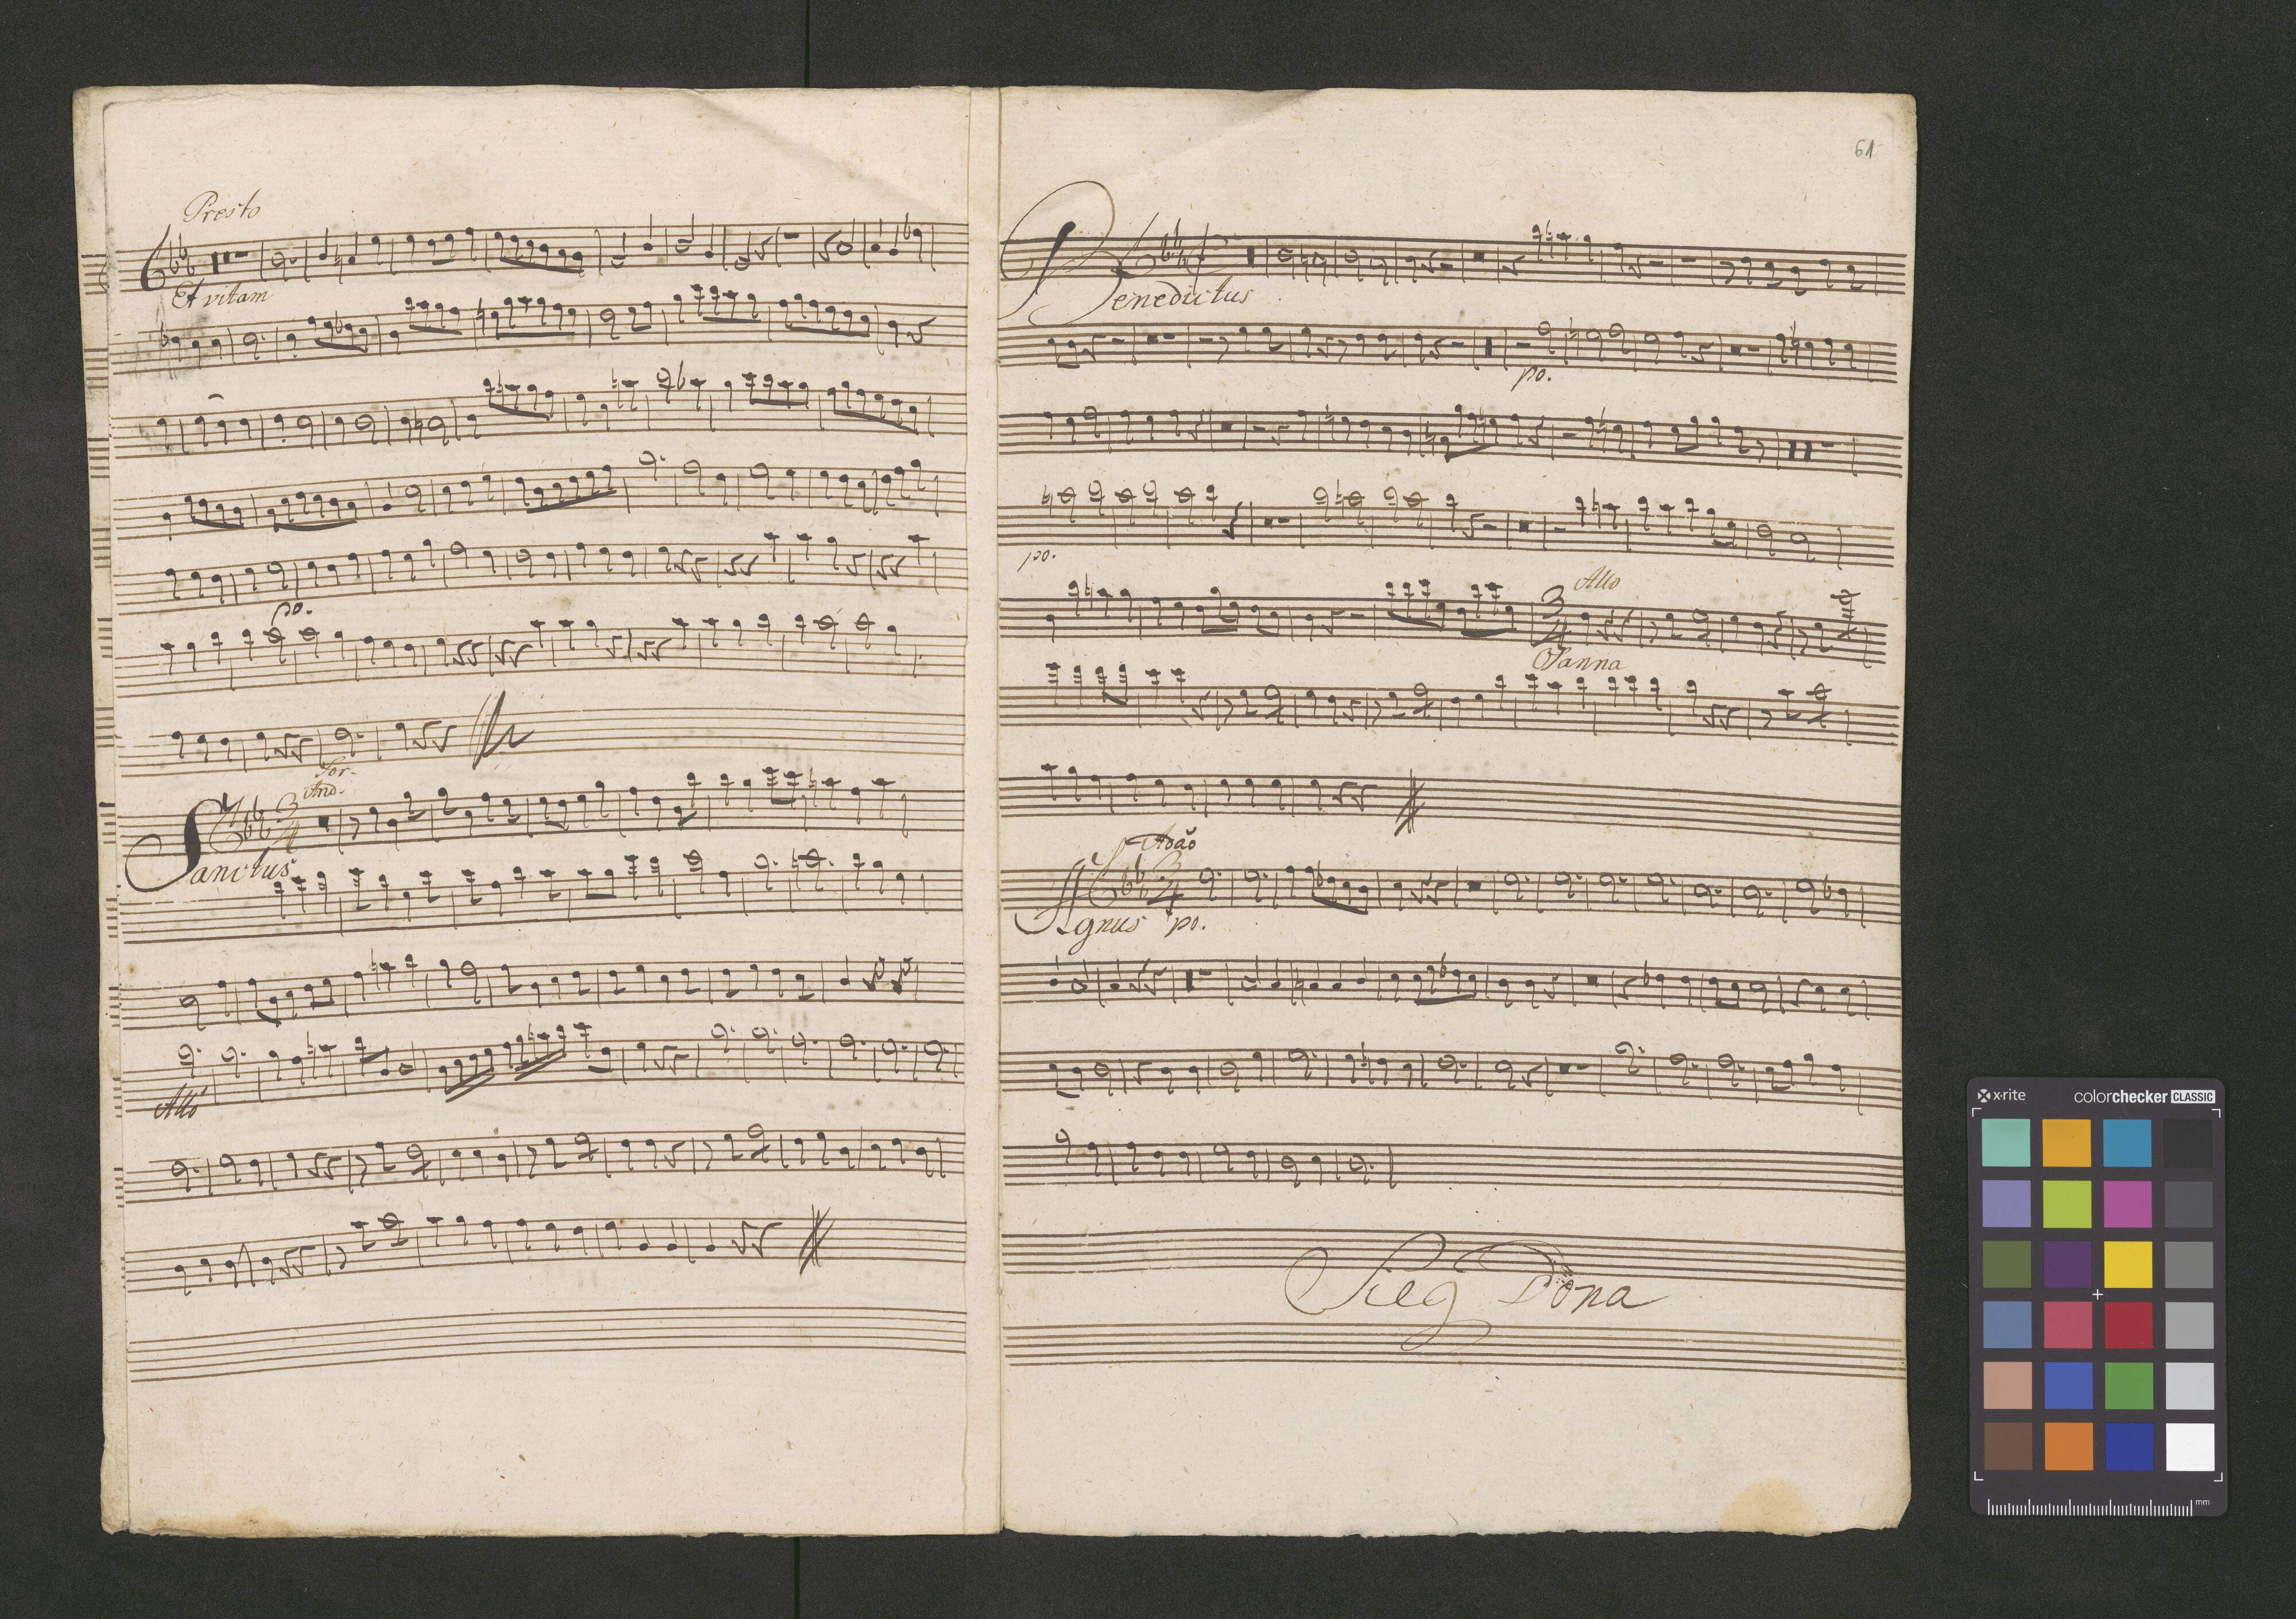 Presto
Et vitam
po.
for.
And.
3
4
Sanctus
Allo
61
Benedictus
po.
po.
3
4
Allo
Osanna
Adaõ
3
4
Agnus po.
Seg Dona
x-rite colorchecker CLASSIC
mm